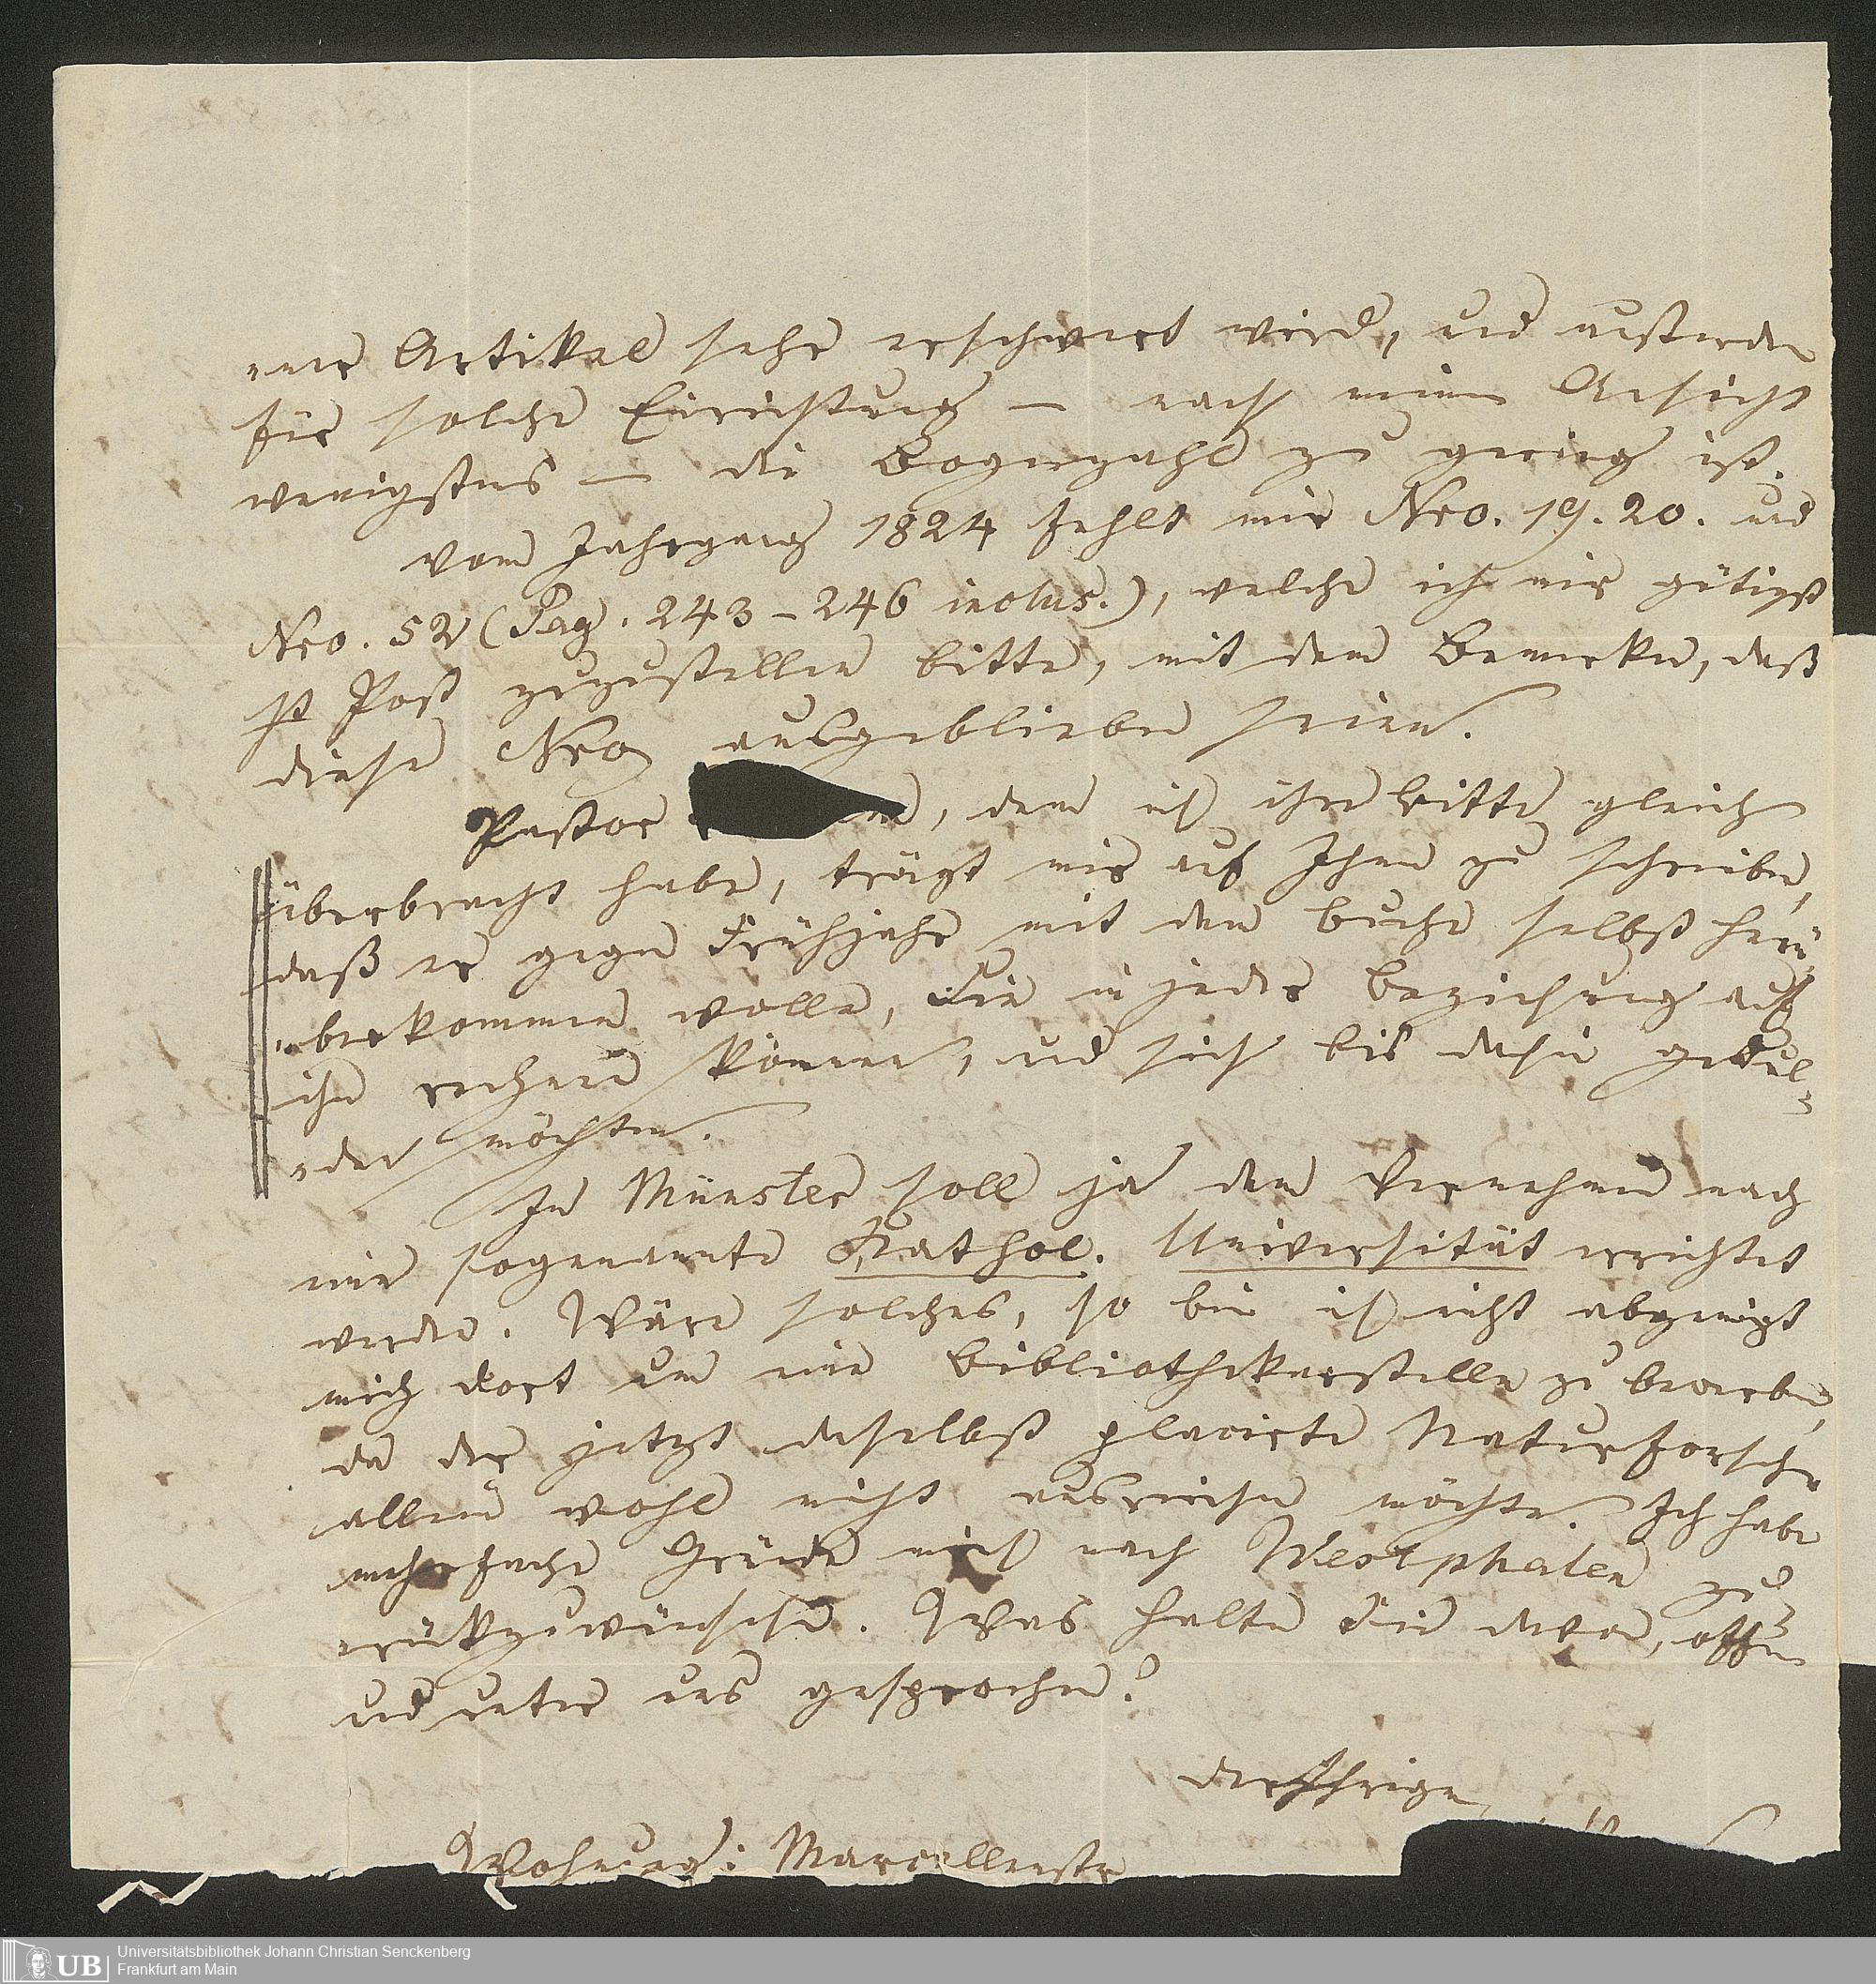 „ner Artikel sehr erschwert wird, und außerdem
für solche Einrichtung – nach meiner Ansicht
wenigstens – die Bogenzahl zu gering ist.
Vom Jahrgang 1824 fehlt mir Nro. 19. 20. und
Nro. 52 (Pag. 243–246 inclus.), welche ich mir gütigst
Post zuzustellen bitte, mit dem Bemerken, daß
diese Nro ausgeblieben seien.
Pastor, dem ich ihre Bitte gleich
überbracht habe, trägt mir auf Ihnen zu schreiben,
daß er gegen Frühjahr mit dem Buche selbst herü-
„berkommen wolle, Sie in jeder Beziehung auf
ihn rechnen können, und sich bis dahin gedul-
„den möchten.
In Münster soll ja dem Vernehmen nach
eine sogenannte Kathol. Universität errichtet
werden. Wäre solches, so bin ich nicht abgeneigt
mich dort um eine Bibliothekarstelle zu bewerben,
da der jetzt daselbst placirte Naturforscher
allein wohl nicht ausreichen möchte. Ich habe
mehrfache Gründe mich nach Westphalen zu-
rückzuwünschen. Was halten Sie davon, offen
und unter uns gesprochen?
der Ihrige
Wohnung: Marcellenstr
UB Universitätsbibliothek Johann Christian Senckenberg
Frankfurt am Main